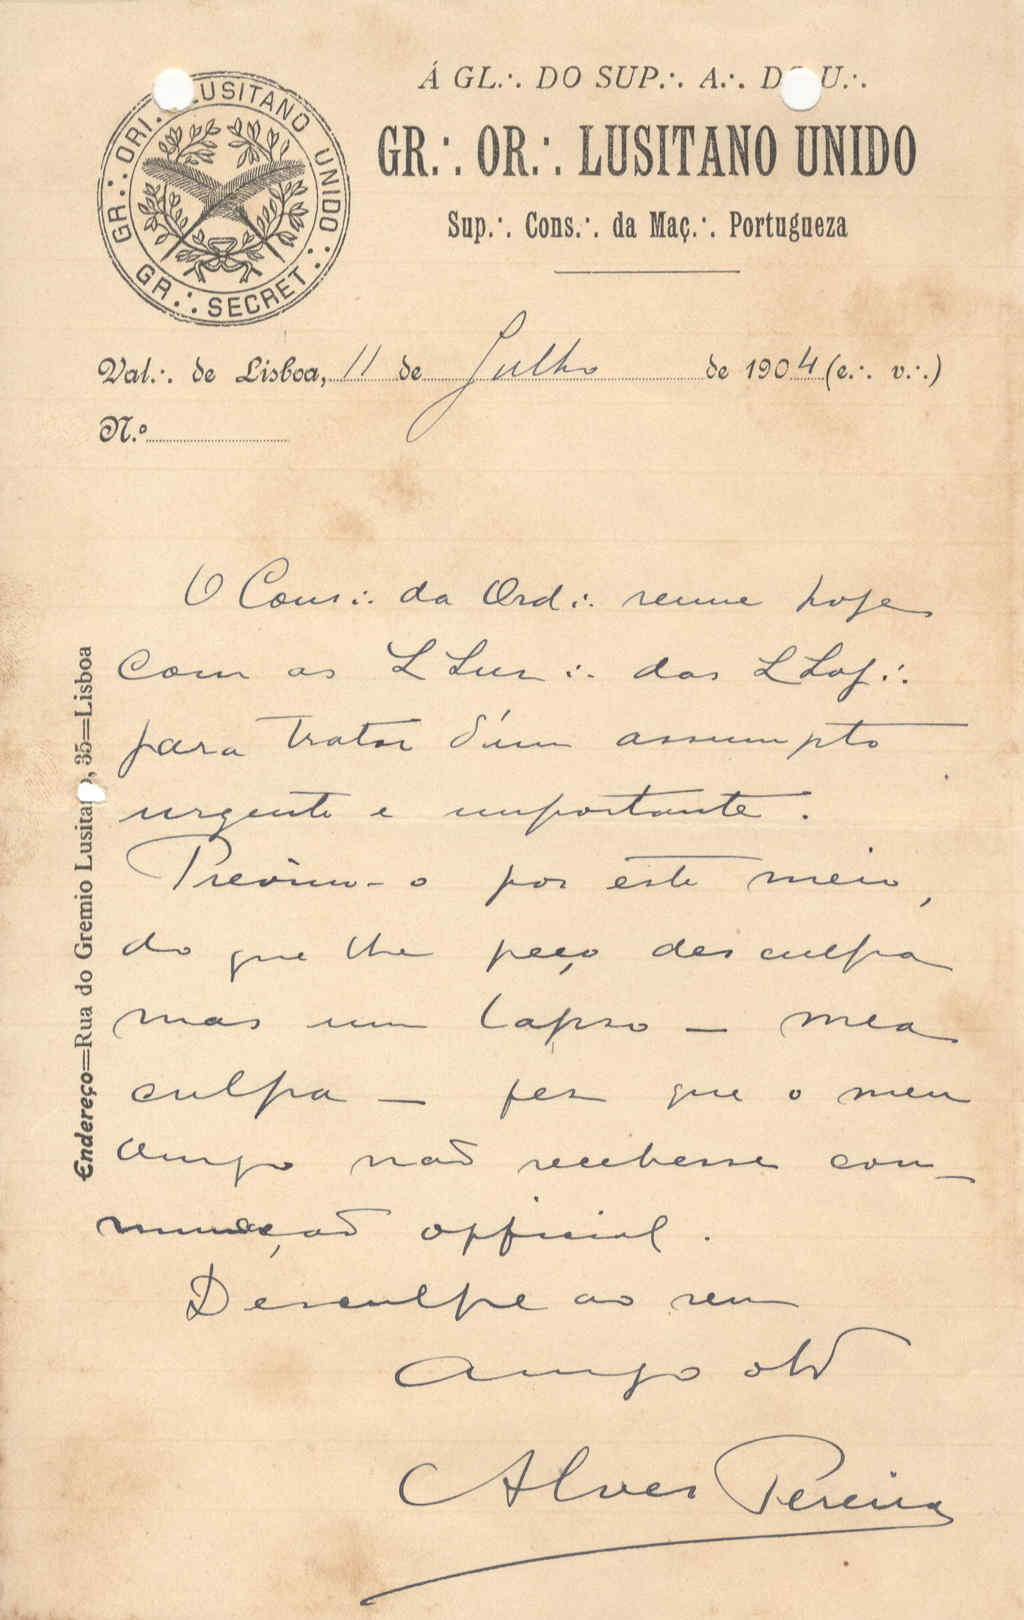 GR.·. ORI.·. LUSITANO UNIDO.·.
GR.·. SECRET.·.
Á GL.·. DO SUP.·. A.·. D U.·.
GR.·. OR.·. LUSITANO UNIDO
Sup.·. Cons.·. da Maç.·. Portugueza
Val.·. de Lisboa, 11 de Julho de 1904 (e.·. v.·.)
N.º
Endereço=Rua do Gremio Lusitano, 35=Lisboa
O Cons.·. da Ord.·. reune hoje
com as LLuz.·. das LLoj.·.
para tratar d'um assumpto
urgente e importante.
Previno-o por este meio,
do que lhe peço desculpa
mas um lapso — mea
culpa — fez que o meu
amigo não recebesse com-
municação official.
Desculpe ao seu
amigo obº
Alves Pereira